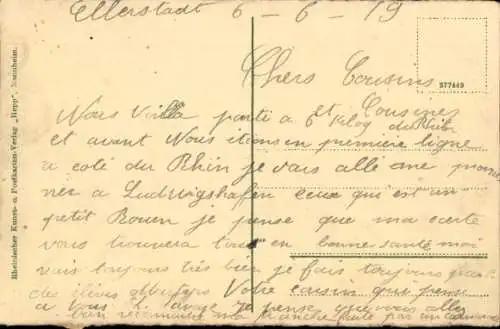 Ellerstadt 6-6-19
Chers Cousins
et Cousines
Nous Voilla partie a 6 Klog du Rhin
et avant Nous itions en première ligne
a coté du Rhin je vais allé me prome
ner a Ludwigshafen ceux qui est un
petit Rouen je pense que ma carte
vous trouvera tous en bonne santé moi
vais toujours très bien je fais toujours
des Votre cousin qui pense
a tous je pense que vous allez
bon ma par un
577449
Rheinischer Kunst- u. Postkarten-Verlag „Hepp“, Mannheim.